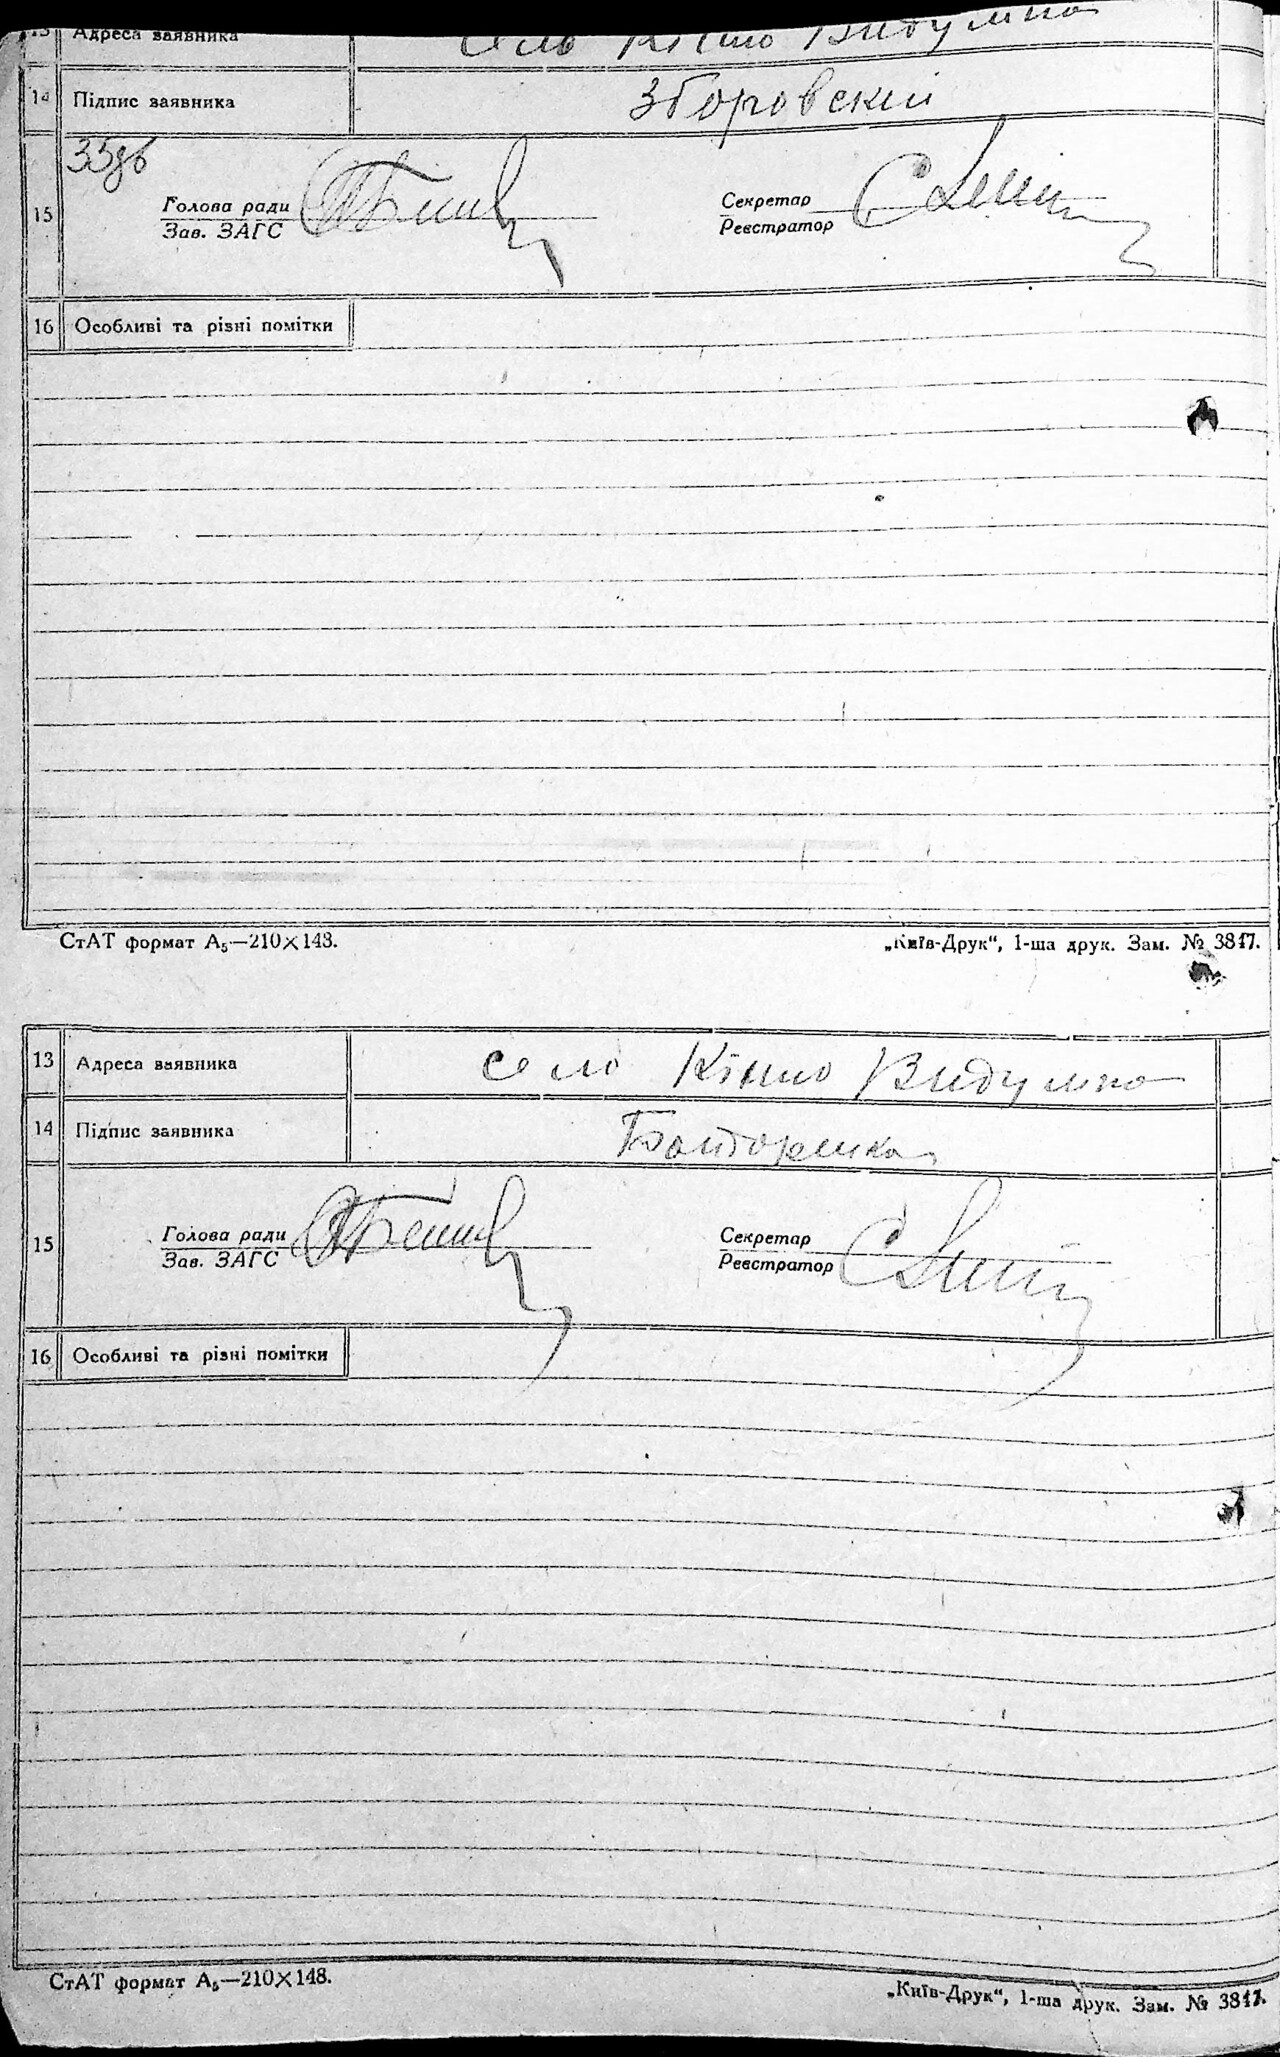 13 Адреса заявника село Кішо Видумка
14 Підпис заявника Зборовский
35
15 Голова ради Секретар
Зав. ЗАГС Реєстратор
16 Особливі та різні помітки
СтАТ формат А₅—210×148. „Київ-Друк“, 1-ша друк. Зам. № 3817.
13 Адреса заявника село Видумка
14 Підпис заявника
15 Голова ради Секретар
Зав. ЗАГС Реєстратор
16 Особливі та різні помітки
СтАТ формат А₅—210×148.
„Київ-Друк“, 1-ша друк. Зам. № 3817.